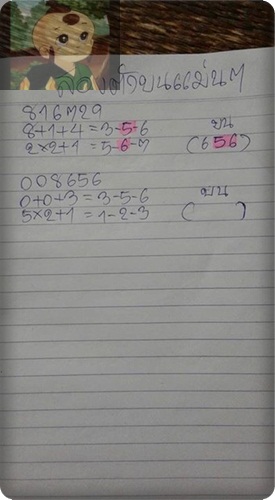 สองตัวบนแม่นๆ
816729
8+1+4=3-5-6 บน
2×2+1=5-6-7 (656)
008656
0+0+3=3-5-6 บน
5×2+1=1-2-3 ( )